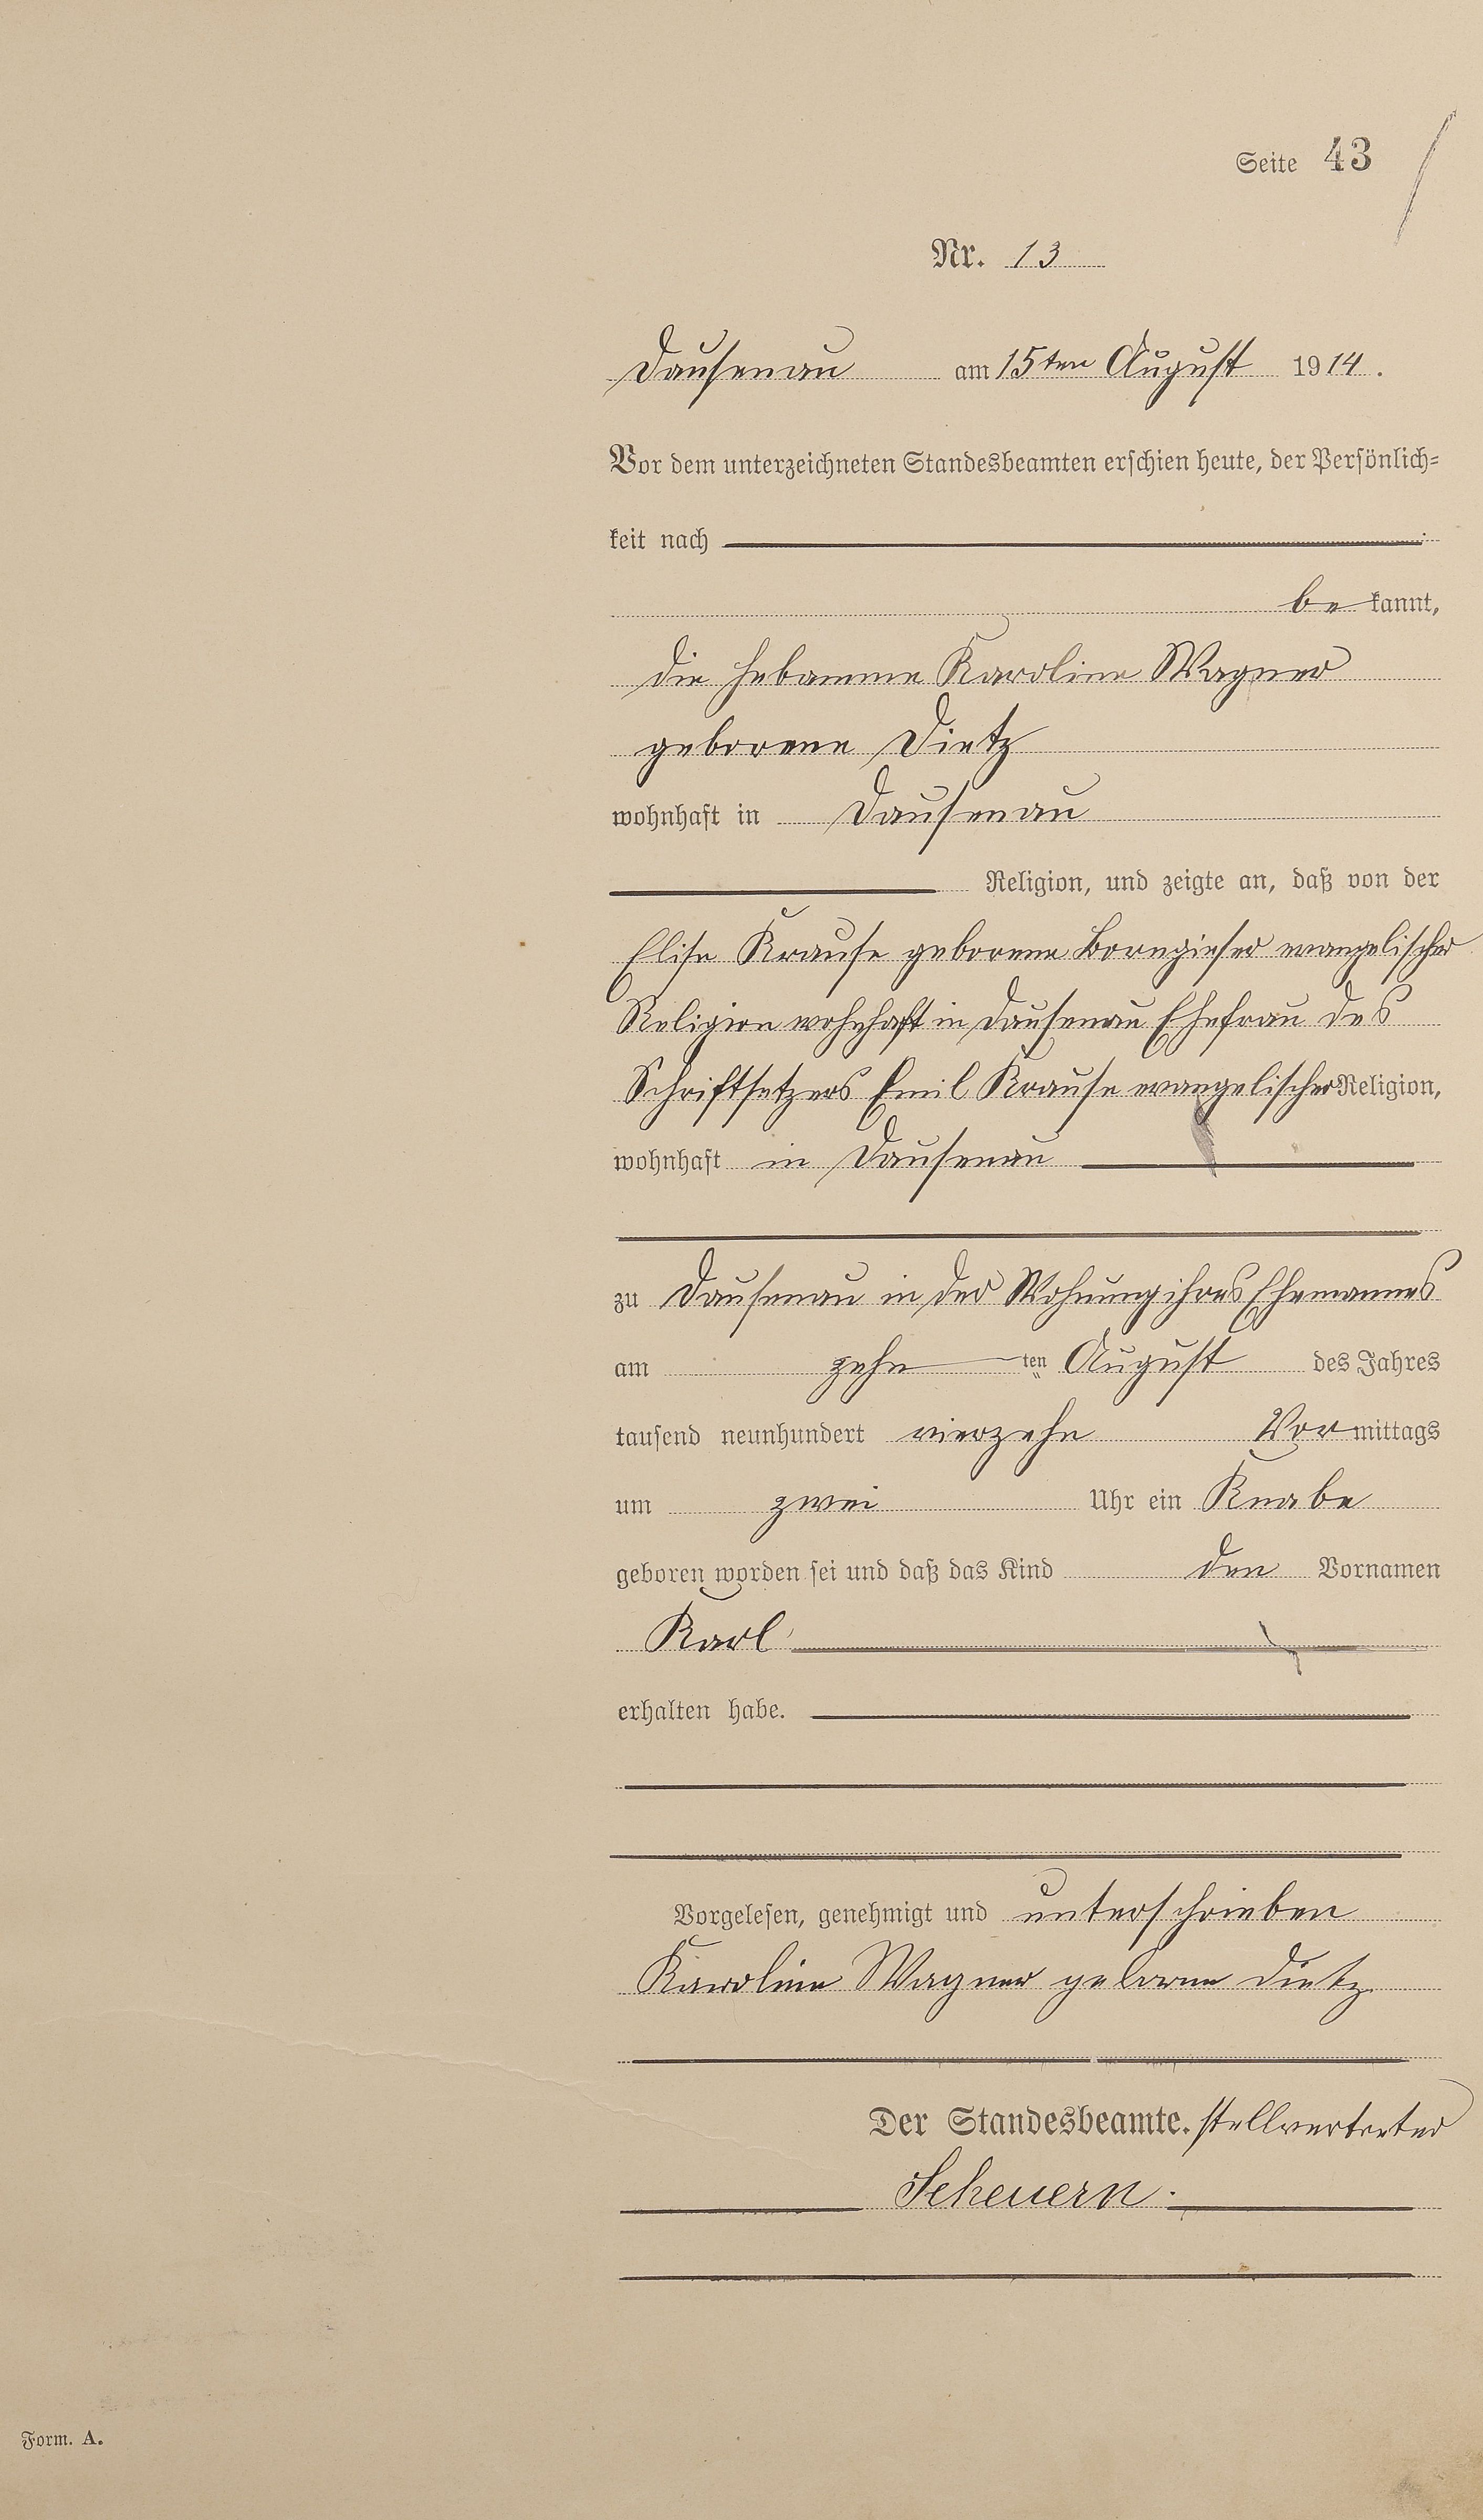 Seite 43
Nr. 13
Dausenau am 15ten August 1914.
Vor dem unterzeichneten Standesbeamten erschien heute, der Persönlich-
keit nach
be kannt,
die Hebamme Karoline Wagner
geborene Dietz
wohnhaft in Dausenau
Religion, und zeigte an, daß von der
Elise Krause geborene Borngießer evangelischer
Religion wohnhaft in Dausenau Ehefrau des
Schriftsetzers Emil Krause evangelischer Religion,
wohnhaft in Dausenau
zu Dausenau in der Wohnung ihres Ehemannes
am zehn ten August des Jahres
tausend neunhundert vierzehn Vormittags
um zwei Uhr ein Knabe
geboren worden sei und daß das Kind den Vornamen
Karl
erhalten habe.
Vorgelesen, genehmigt und unterschrieben
Karoline Wagner geborne Dietz
Der Standesbeamte. stellvertreter
Scheuern.
Form. A.